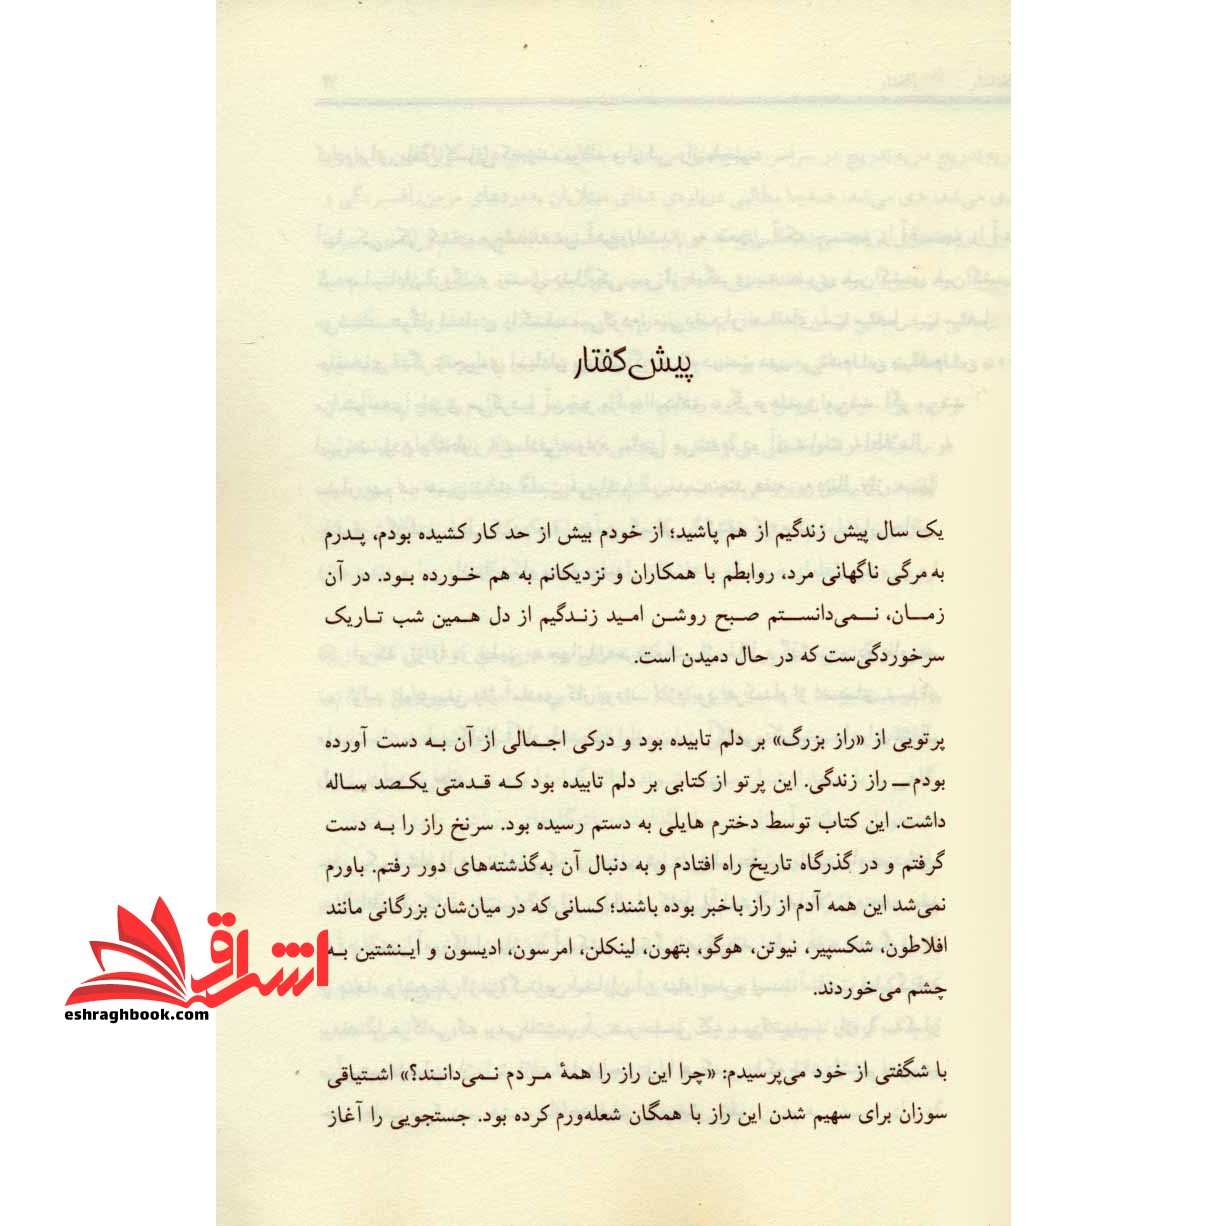 پیش‌گفتار
یک سال پیش زندگیم از هم پاشید؛ از خودم بیش از حد کار کشیده بودم، پـدرم
به مرگی ناگهانی مرد، روابطم با همکاران و نزدیکانم به هم خـورده بـود. در آن
زمـان، نـمی‌دانسـتم صبح روشـن امید زنـدگیم از دل همین شب تـاریک
سرخوردگی‌ست که در حال دمیدن است.
پرتویی از «راز بزرگ» بر دلم تابیده بود و درکی اجـمالی از آن بـه دست آورده
بودم ــ راز زندگی. این پرتو از کتابی بر دلم تابیده بود کـه قـدمتی یکـصد سـاله
داشت. این کتاب توسط دخترم هایلی به دستم رسیده بود. سرنخ راز را بـه دست
گرفتم و در گذرگاه تاریخ راه افتادم و به دنبال آن به‌گذشته‌های دور رفتم. باورم
نمی‌شد این همه آدم از راز باخبر بوده باشند؛ کسانی که در میان‌شان بزرگانی مانند
افلاطون، شکسپیر، نیوتن، هوگو، بتهون، لینکلن، امرسون، ادیسون و ایـنشتین بـه
چشم می‌خوردند.
با شگفتی از خود می‌پرسیدم: «چرا این راز را همهٔ مـردم نـمی‌دانـند؟» اشـتیاقی
سوزان برای سهیم شدن این راز با همگان شعله‌ورم کرده بود. جستجویی را آغاز
اشراق
eshraghbook.com